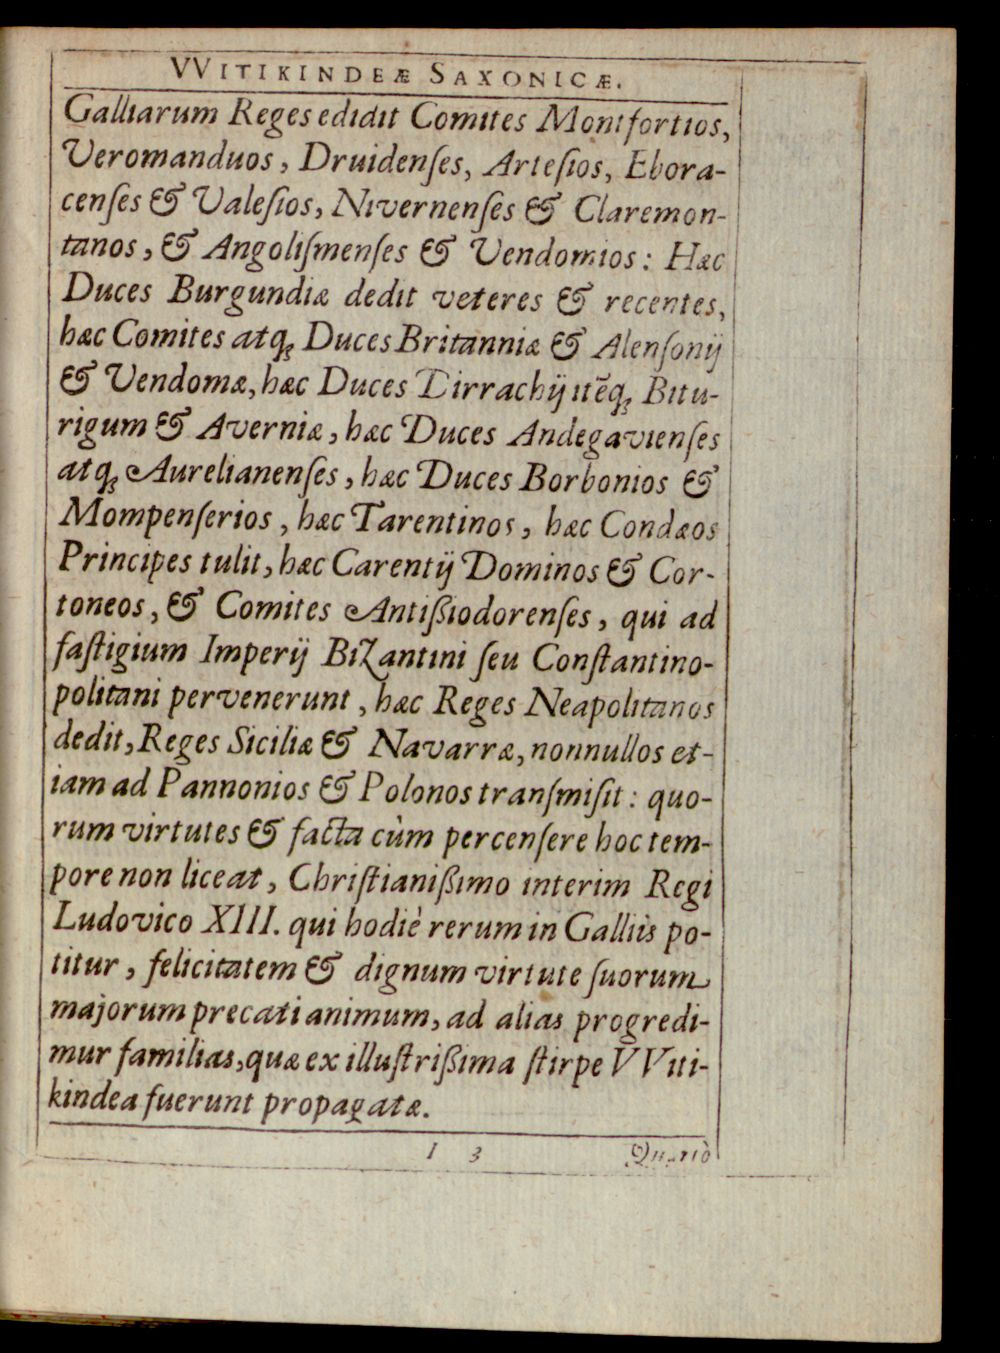 VVITIKINDEÆ SAXONICÆ.
Galliarum Reges edidit Comites Montfortios,
Veromanduos, Druidenſes, Arteſios, Ebora-
cenſes & Valeſios, Nivernenſes & Claremon-
tanos, & Angoliſmenſes & Vendomios: Hæc
Duces Burgundiæ dedit veteres & recentes,
hæc Comites atq; Duces Britanniæ & Alenſonij
& Vendomæ, hæc Duces Dirrachij itēq; Bitu-
rigum & Averniæ, hæc Duces Andegavienſes
atq; Aurelianenſes, hæc Duces Borbonios &
Mompenſerios, hæc Tarentinos, hæc Condæos
Principes tulit, hæc Carentij Dominos & Cor-
toneos, & Comites Antißiodorenſes, qui ad
faſtigium Imperij Bizantini ſeu Conſtantino-
politani pervenerunt, hæc Reges Neapolitanos
dedit, Reges Siciliæ & Navarræ, nonnullos et-
iam ad Pannonios & Polonos tranſmiſit: quo-
rum virtutes & facta cùm percenſere hoc tem-
pore non liceat, Chriſtianißimo interim Regi
Ludovico XIII. qui hodiè rerum in Galliis po-
titur, felicitatem & dignum virtute ſuorum
majorum precati animum, ad alias progredi-
mur familias, quæ ex illuſtrißima ſtirpe VViti-
kindea fuerunt propagatæ.
I 3 Quartò